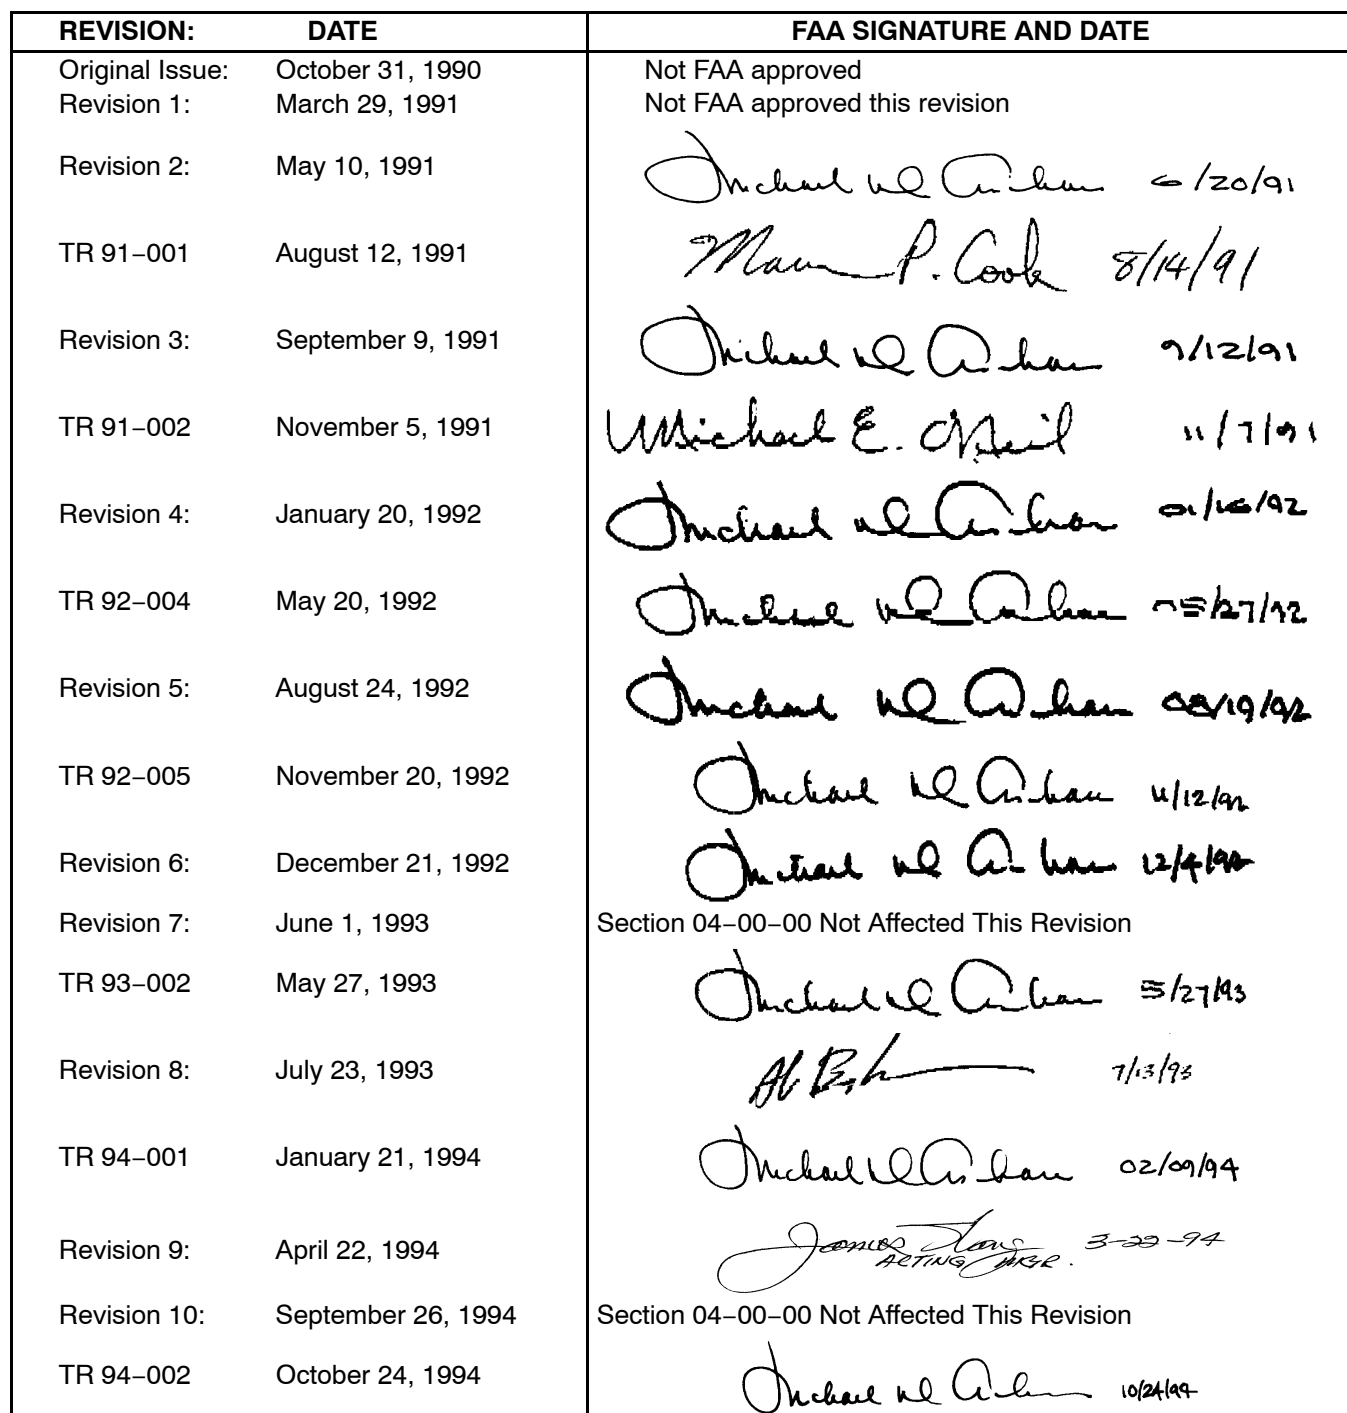 REVISION: DATE FAA SIGNATURE AND DATE
Original Issue: October 31, 1990 Not FAA approved
Revision 1: March 29, 1991 Not FAA approved this revision
Revision 2: May 10, 1991 Michael 6/20/91
TR 91−001 August 12, 1991 P. Cook 8/14/91
Revision 3: September 9, 1991 Michael 9/12/91
TR 91−002 November 5, 1991 Michael E. O'Neil 11/7/91
Revision 4: January 20, 1992 Michael
TR 92−004 May 20, 1992 Michael 05/27/92
Revision 5: August 24, 1992 Michael 08/19/92
TR 92−005 November 20, 1992 Michael 11/12/92
Revision 6: December 21, 1992 Michael 12/4/92
Revision 7: June 1, 1993 Section 04−00−00 Not Affected This Revision
TR 93−002 May 27, 1993 Michael 5/27/93
Revision 8: July 23, 1993 7/13/93
TR 94−001 January 21, 1994 Michael 02/09/94
Revision 9: April 22, 1994 James 3-22-94
ACTING MGR.
Revision 10: September 26, 1994 Section 04−00−00 Not Affected This Revision
TR 94−002 October 24, 1994 Michael 10/24/94